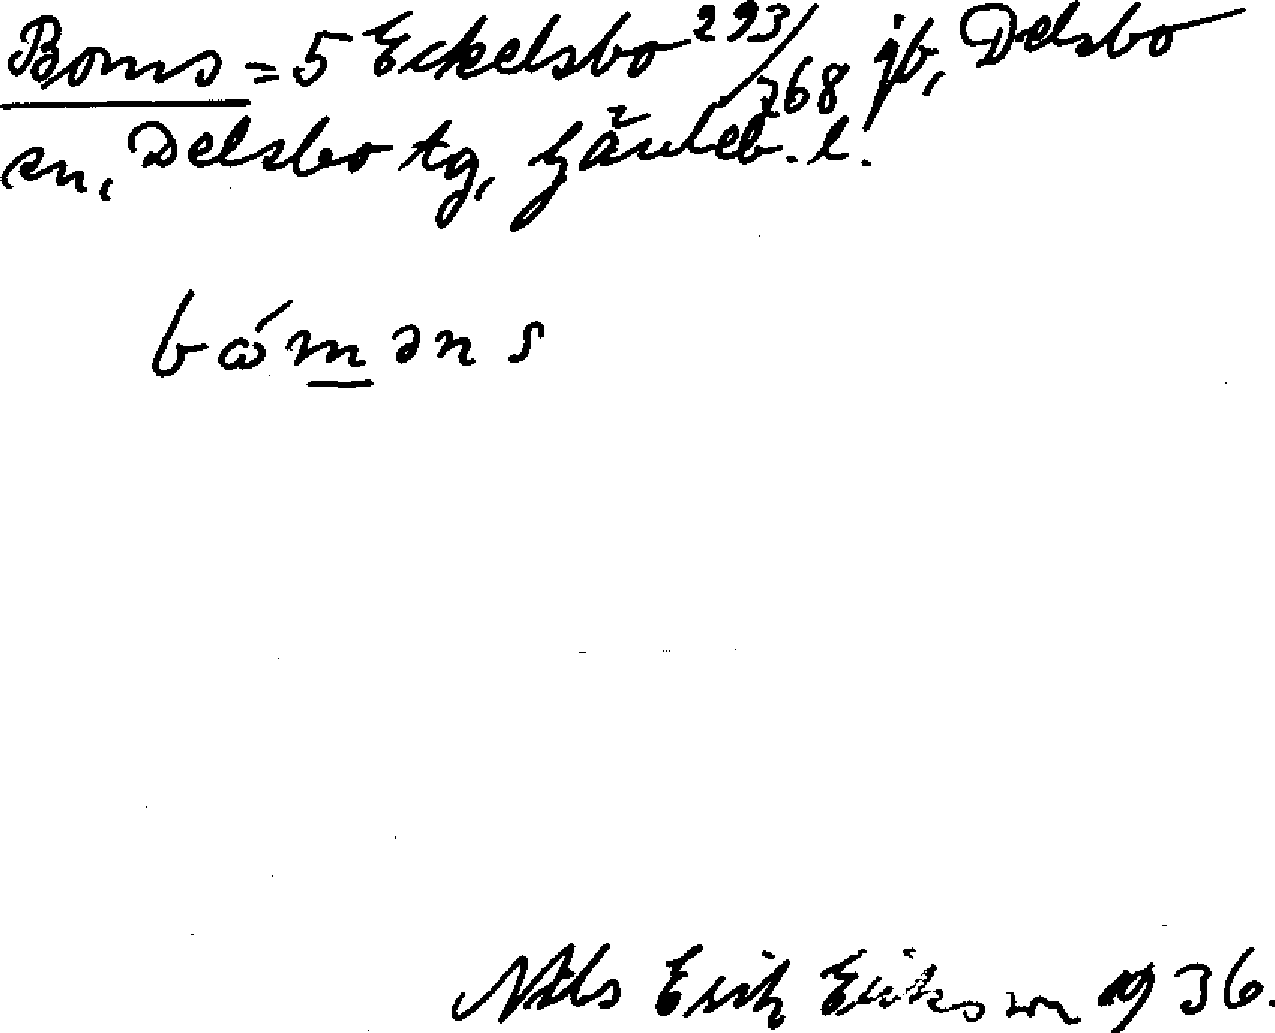 Boms = 5 Eckelsbo 293/768 jb, Delsbo
sn, Delsbo tg, Gävleb. l.
bɷ́m̲əns
Nils Erik Eriksson 1936.